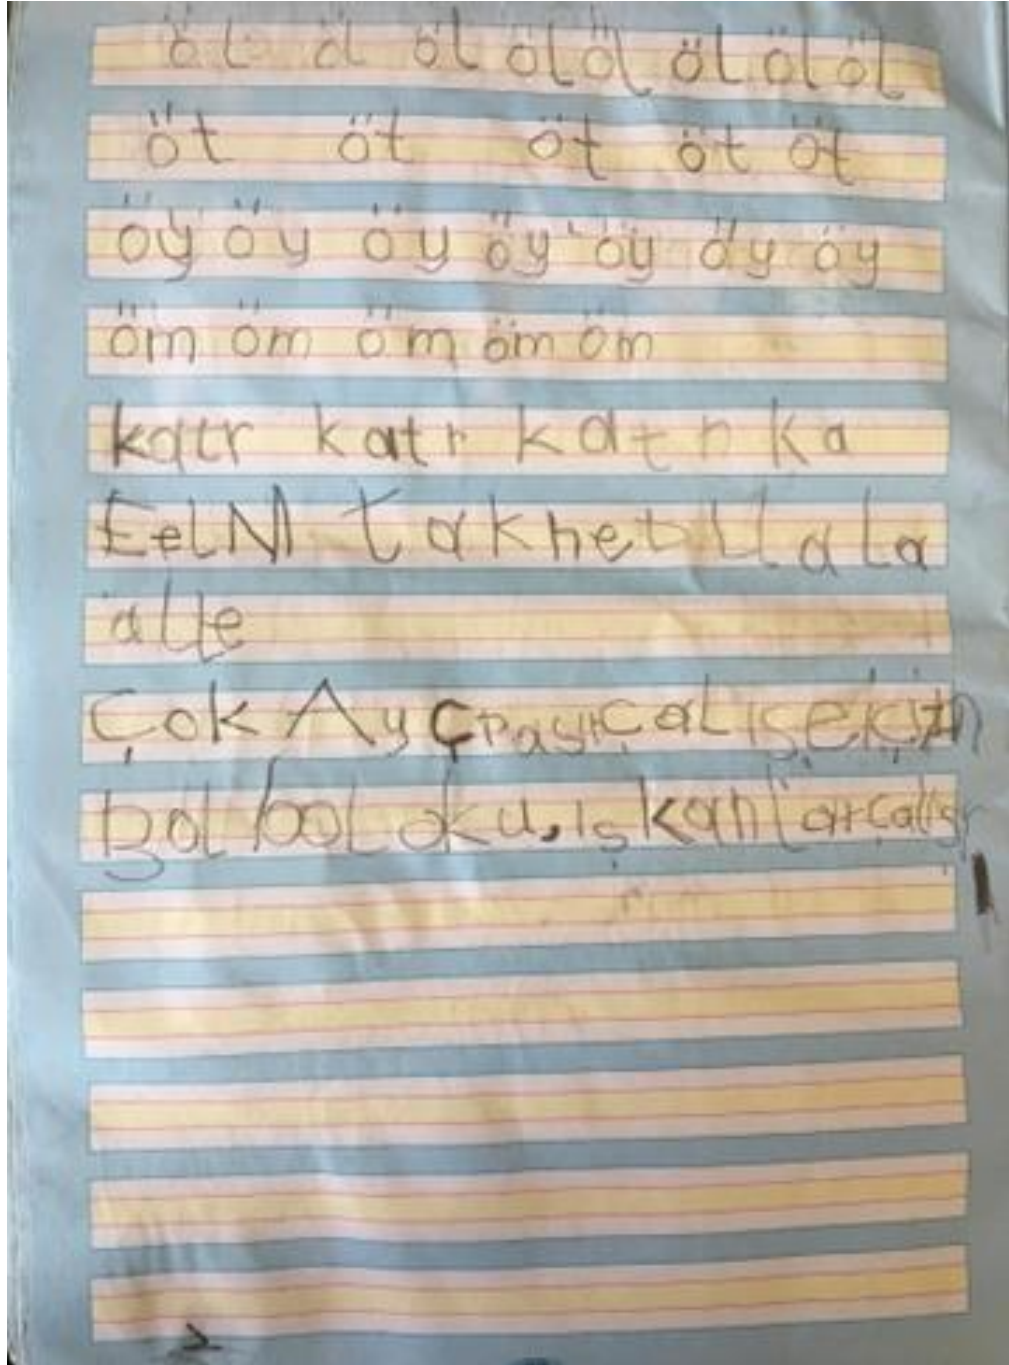 öl öl öl öl öl öl öl öl
öt öt öt öt öt
öy öy öy öy öy öy öy
öm öm öm öm öm
katr katr katr ka
EelNl takhet
alle
Çok Ay
Bol bol oku, ışkanlarçalışr